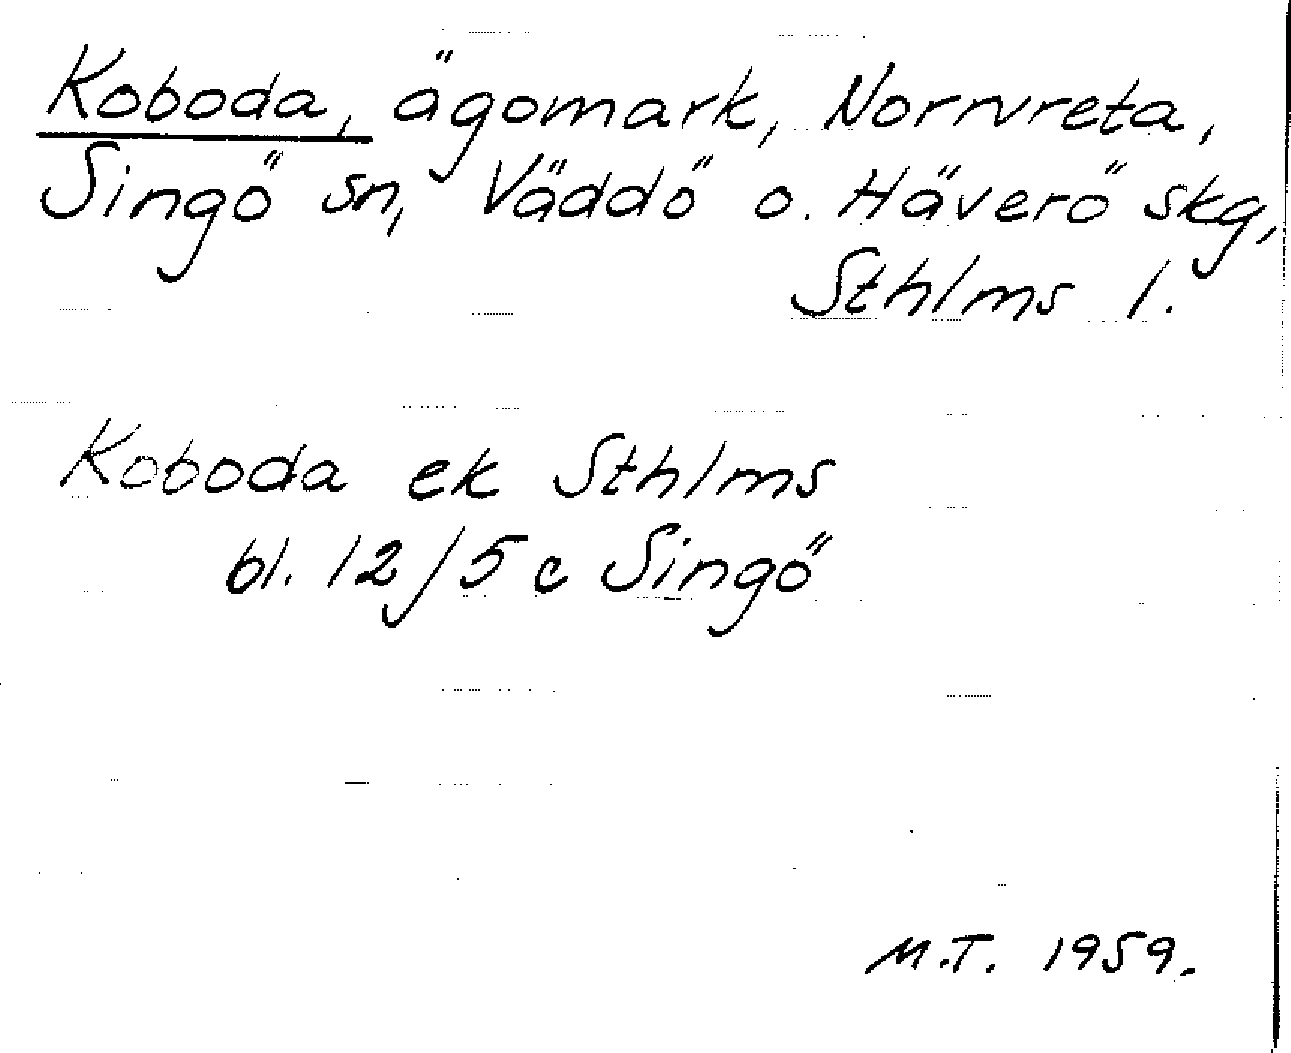 Koboda, ägomark, Norrvreta,
Singö sn, Väddö o. Häverö skg,
Sthlms l.
Koboda ek Sthlms
bl. 12/5 c Singö
M.T. 1959.